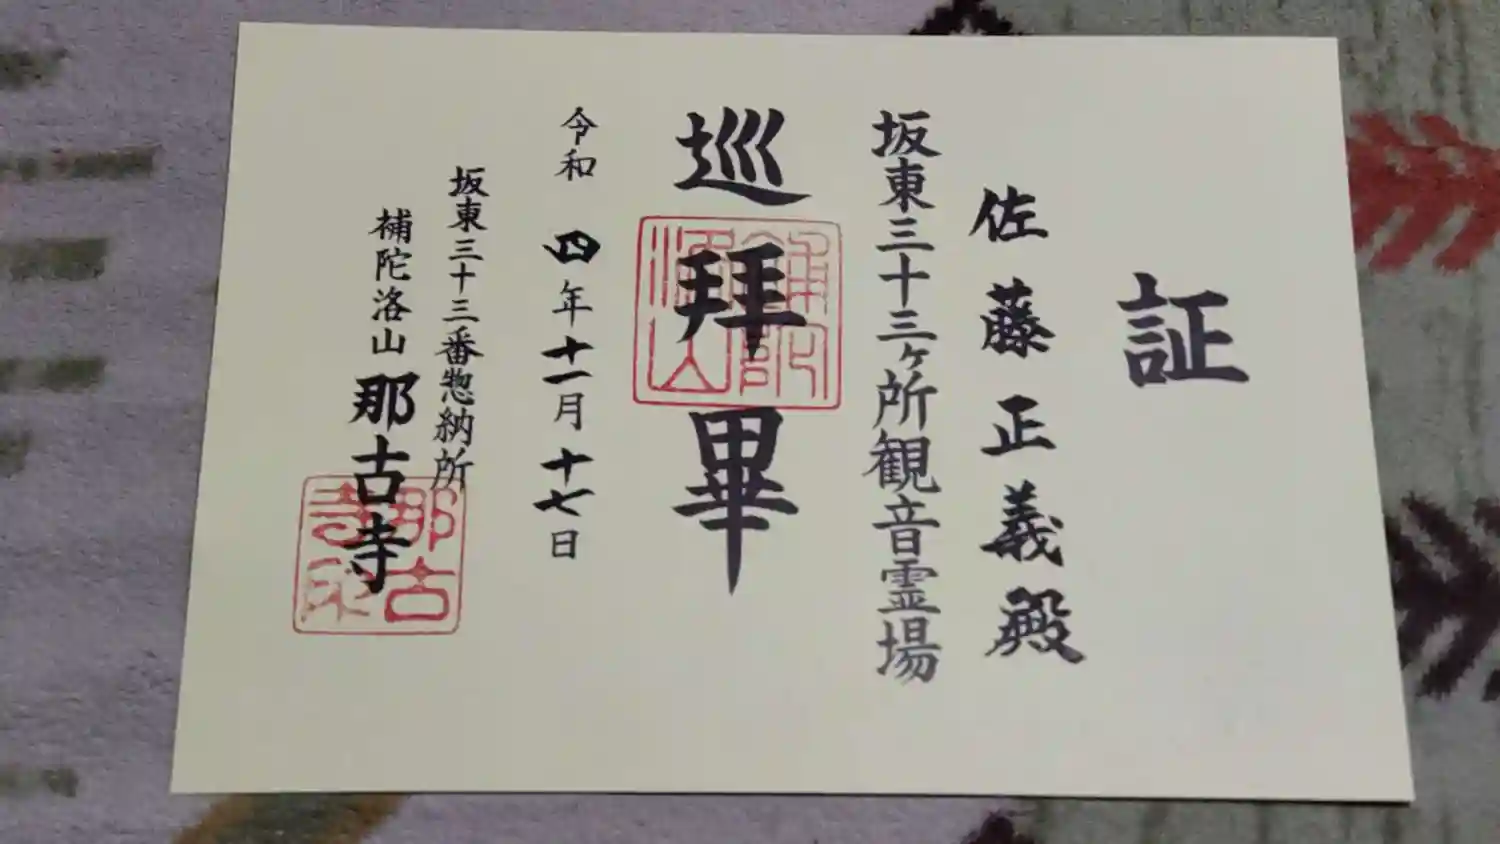 証
佐藤正義殿
坂東三十三ヶ所観音霊場
巡拝畢
令和四年十一月十七日
坂東三十三番惣納所
補陀洛山那古寺
那古
寺印